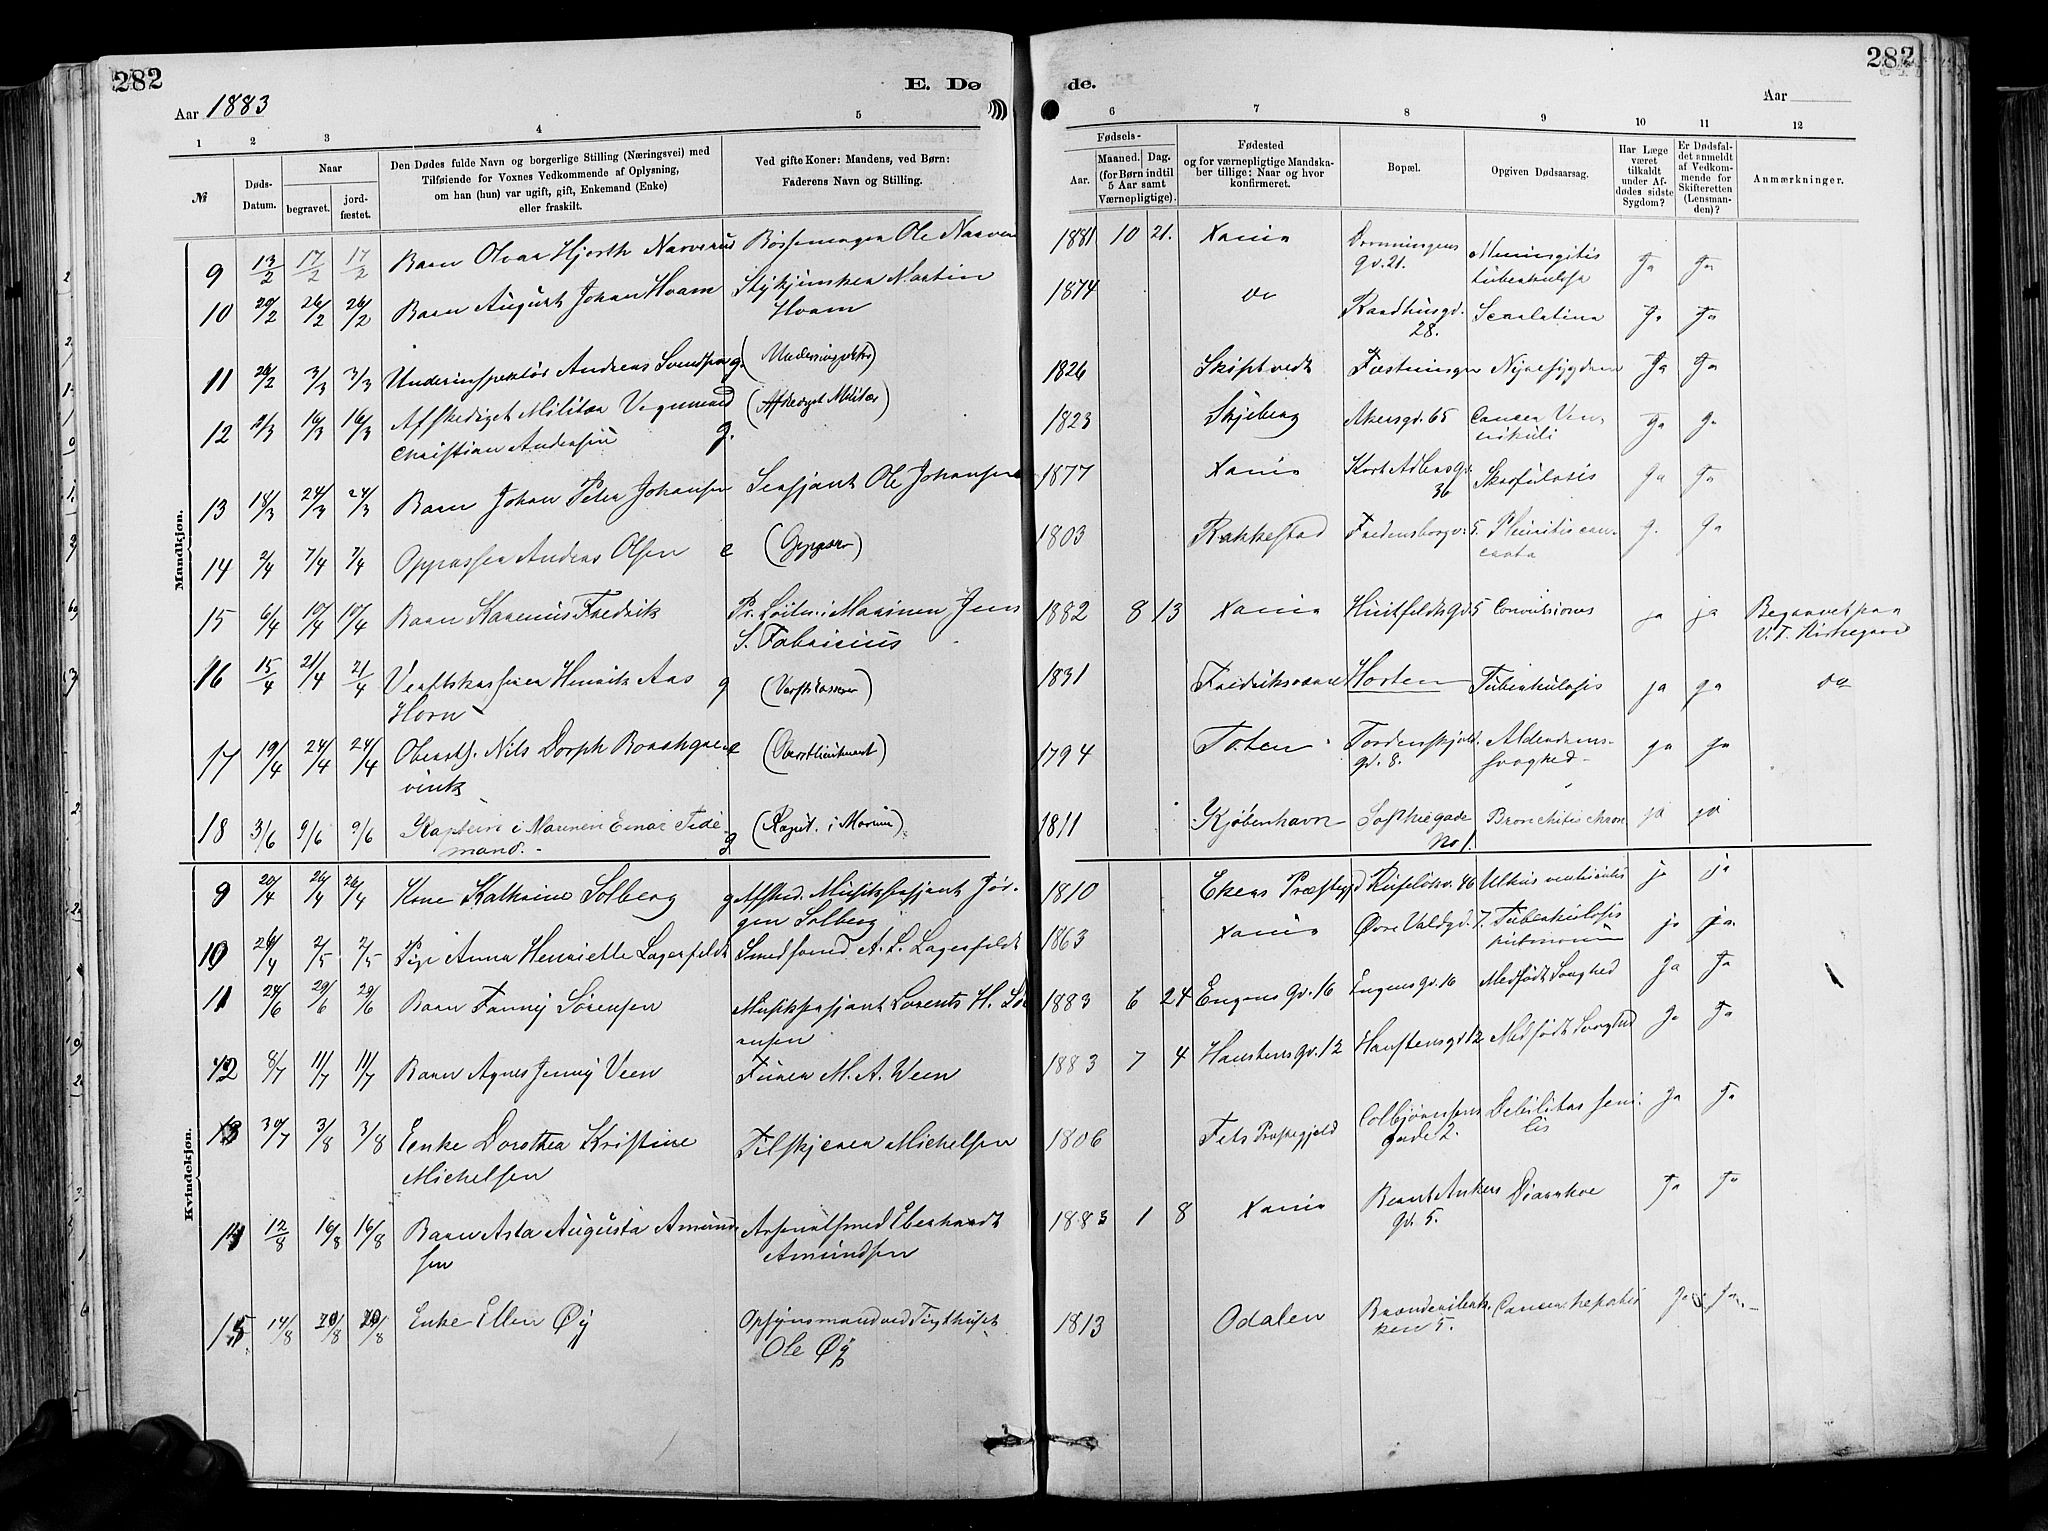 282
E. Dø
Aar 1883
1 2 3 4 5
№
Døds-Datum.
Naar
begravet.
jord-fæstet.
Den Dødes fulde Navn og borgerlige Stilling (Næringsvei) med
Tilføiende for Voxnes Vedkommende af Oplysning,
om han (hun) var ugift, gift, Enkemand (Enke)
eller fraskilt.
Ved gifte Koner: Mandens, ved Børn:
Faderens Navn og Stilling.
Mandkjøn.
9 13/2 17/2 17/2 Barn Olvar Hjorth Narverud Bøssemager Ole Narve
10 20/2 26/2 26/2 Barn August Johan Hvam Stykjunker Martin
Hvam
11 26/2 3/3 3/3 Underinspektør Andreas Svendsen g. (Underinspektør)
12 11/3 16/3 16/3 Afskediget Militær
Christian Andersen g. (Afskediget Militær)
13 18/3 24/3 24/3 Barn Johan Peter Johansen Sersjant Ole Johansen
14 2/4 7/4 7/4 Oppasser Andreas Olsen e (Oppasser)
15 6/4 10/4 10/4 Barn Karenius Fredrik Pr. Løitn. i Marinen Jens
S. Fabricius
16 15/4 21/4 21/4 Verftskasserer Henrik Aas g (Verftskasserer)
Horn
17 19/4 24/4 24/4 Oberstl. Nils Dorph e (Oberstlieutenant)
vink
18 3/6 9/6 9/6 Kaptein i Marinen Einar Tide-
mand. g (Kapit. i Marine)
Kvindekjøn.
9 20/4 26/4 26/4 Kone Kathrine Solberg g Afsked. Musiksersjant Jør-
gen Solberg
10 26/4 2/5 2/5 Pige Anna Henriette Lagerfeldt Smedsvend A. L. Lagerfeldt
11 24/6 29/6 29/6 Barn Fanny Sørensen Musiksersjant Lorents H. Sø
rensen
12 8/7 11/7 11/7 Barn Agnes Jenny Veen Furer M. A. Veen
13 30/7 3/8 3/8 Enke Dorothea Kristine Tilskjærer Michelsen
Michelsen
14 12/8 16/8 16/8 Barn Asta Augusta Amund- Arsenalsmed Eberhardt
sen Amundsen
15 14/8 20/8 20/8 Enke Ellen Øy Opsynsmand ved Tugthuset
Ole Øy
282
de.
Aar
6 7 8 9 10 11 12
Fødsels-
Aar.
Maaned. Dag.
(for Børn indtil
5 Aar samt
Værnepligtige).
Fødested
og for værnepligtige Mandska-
ber tillige: Naar og hvor
konfirmeret.
Bopæl.
Opgiven Dødsaarsag.
Har Læge
været
tilkaldt
under Af-
dødes sidste
Sygdom?
Er Dødsfal-
det anmeldt
af Vedkom-
mende for
Skifteretten
(Lensman-
den)?
Anmærkninger.
1881 10 21. Xania Dronningens Meningitis Ja Ja
gd. 21. tuberkulosa
1874 do Raadhusgd. Scarlatina Ja Ja
28.
1826 Skiptvedt Fæstningen Nyresygdom Ja Ja
1823 Skjeberg Akersgd. 65 Cancer Ven- Ja Ja
trikuli
1877 Xania Kort Adlersgd. Skrofulosis Ja Ja
36
1803 Rakkestad Fredensborgv. 5. Ja Ja
1882 8 13 Xania Huitfeldtsgd. 5 Convulsiones ja ja Begravet paa
V. F. Kirkegaard
1831 Fredriksværn Horten Tuberkulosis ja ja do
1794 Toten Tordenskjold. Alderdoms- ja ja
gd. 8. svaghed
1811 Kjøbenhavn Sofhiegade Bronchitis chron ja ja
No 1.
1810 Ekers Præstegjd 46 Ulkus ventriculi ja ja
1863 Xania Øvre Voldgd. 7. Tuberkulosis ja ja
pulmonum
1883 6 24 Engens gd. 16 Engens gd. 16 Medfødt Svaghed Ja Ja
1883 7 4 Haustens gd. 12 Haustensgd 12 Medfødt Svaghed Ja Ja
1806 Fets Præstegjeld Colbjørnsens Debilitas seni- Ja Ja
gade 2. lis
1883 1 8 Xania Bernt Ankers Diarrhoe Ja Ja
gd. 5.
1813 Odalen Cancer hepatis Ja Ja
5.